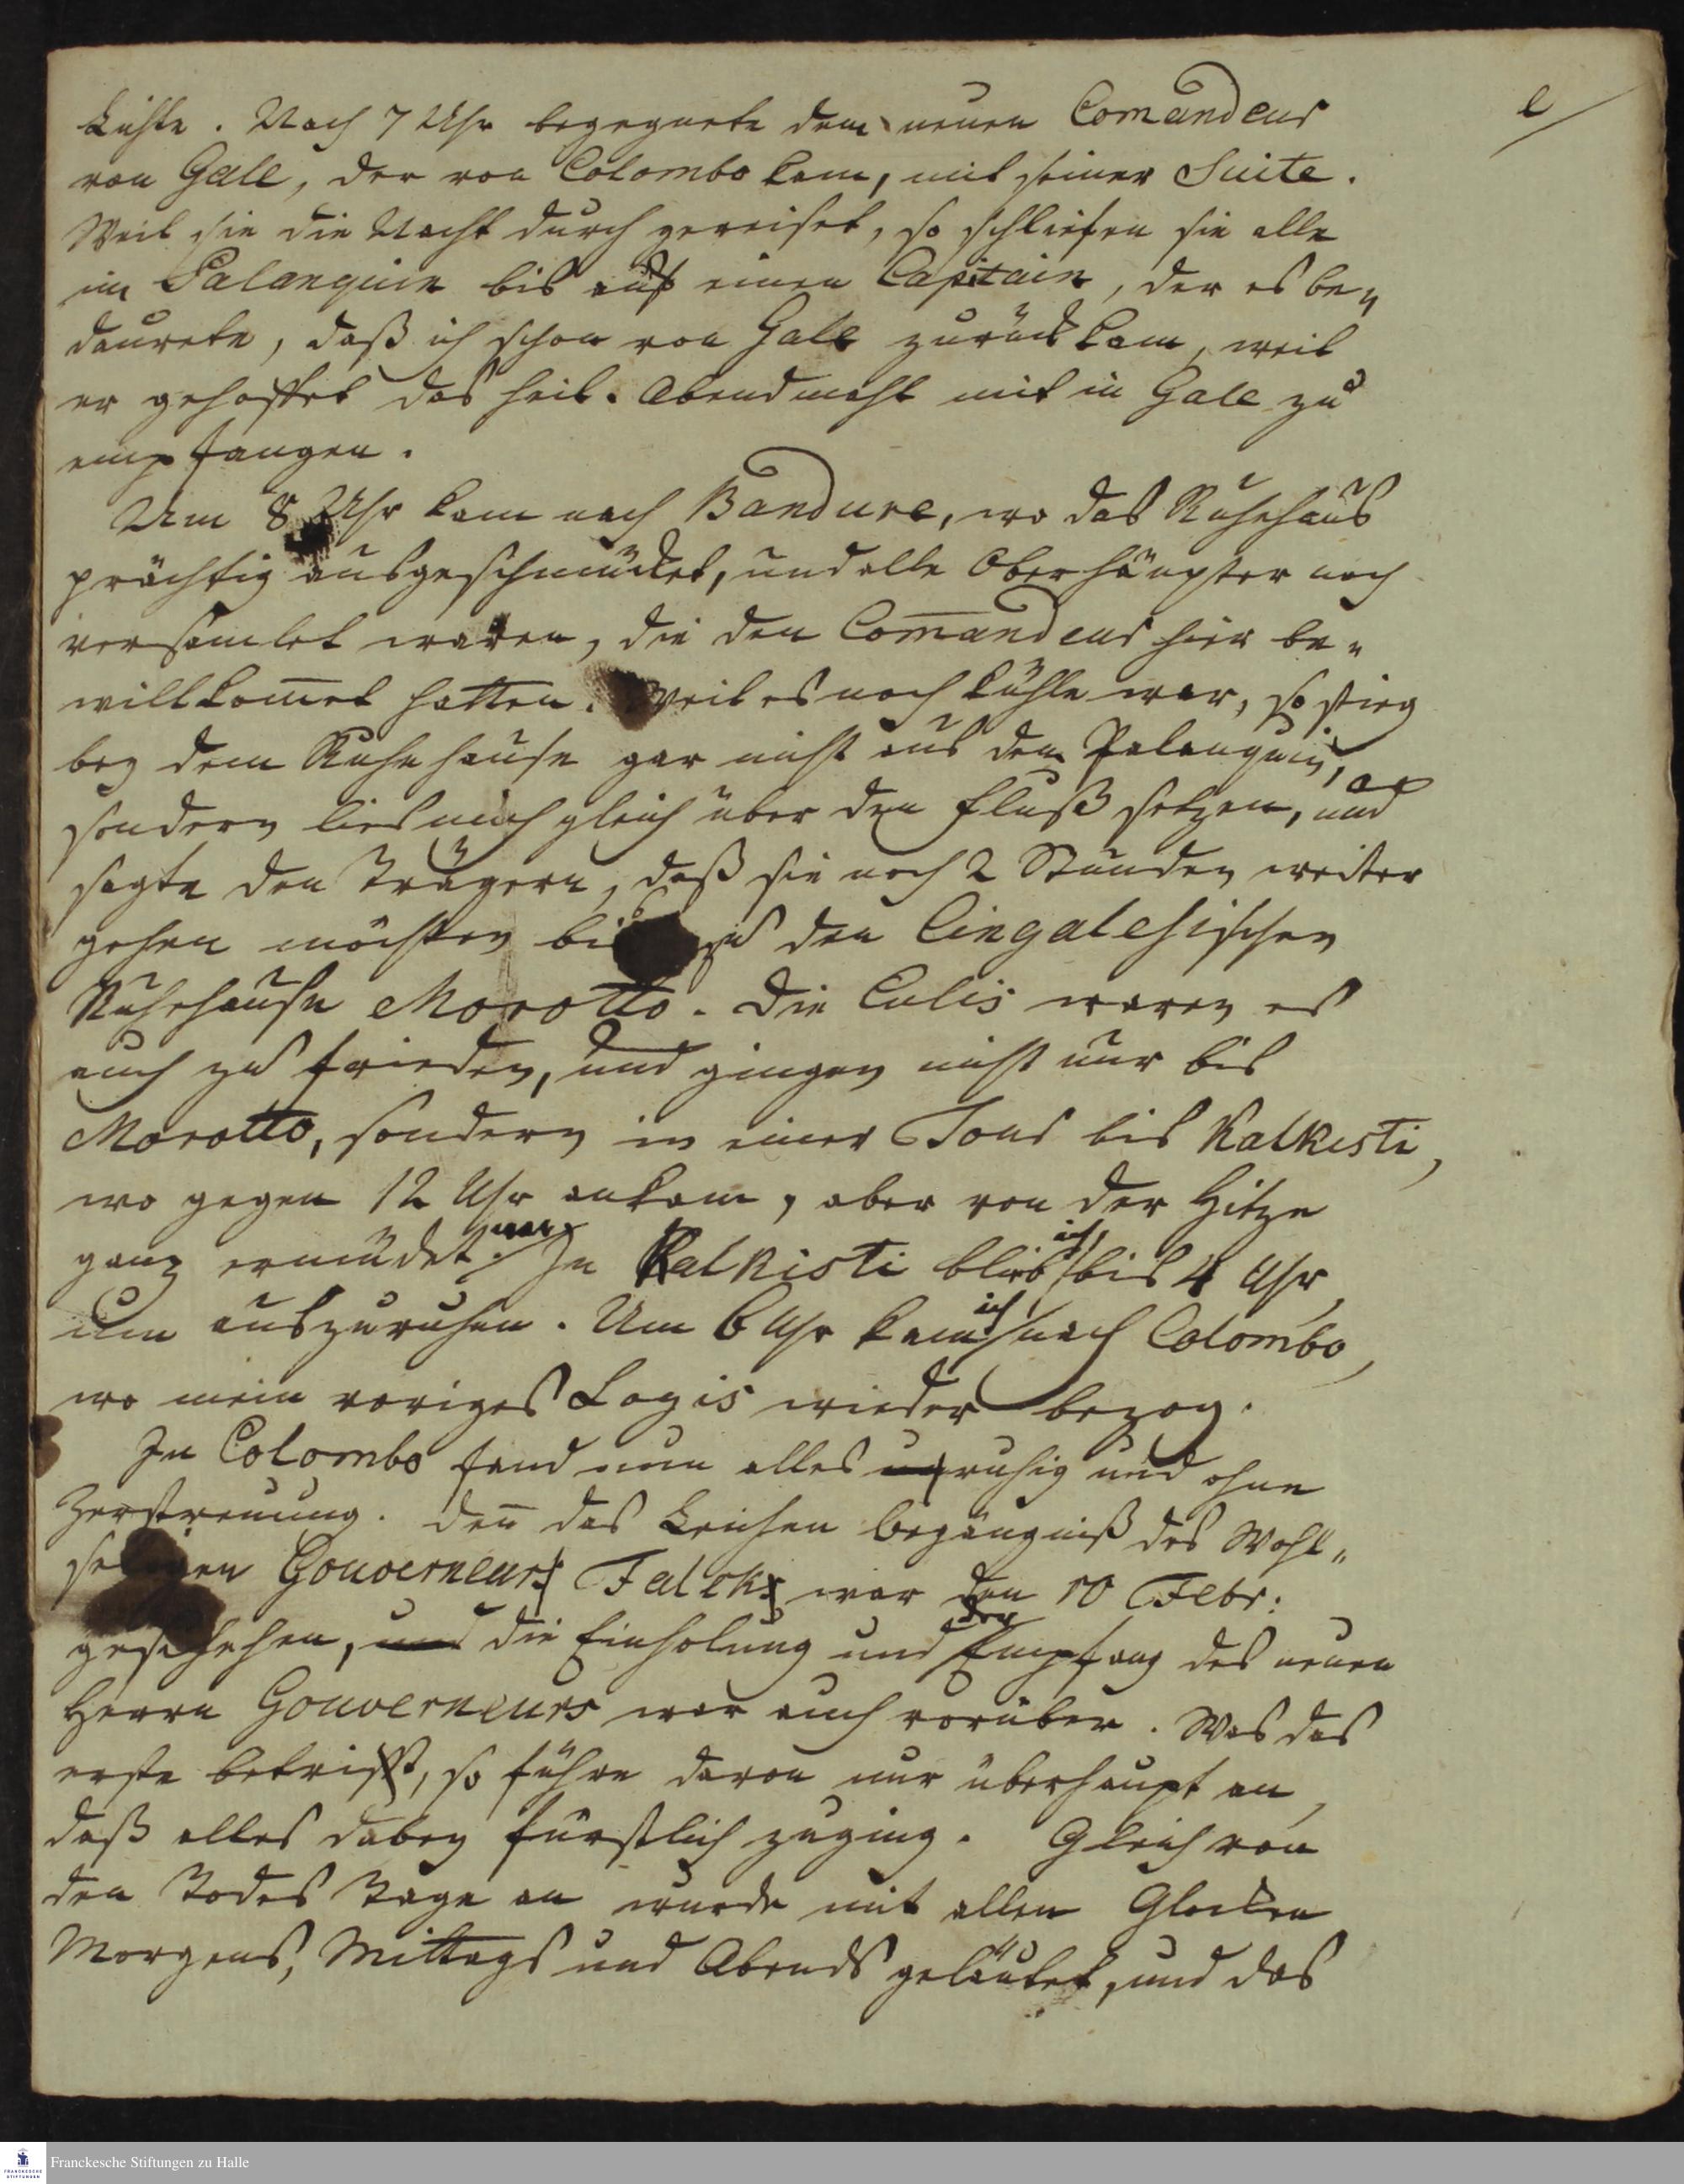 Küste. Nach 7 Uhr begegnete dem neuen Comandeur
von Gale, der von Colombo kam, mit seiner Suite.
Weil sie die Nacht durch gereiset, so schliefen sie alle
im Palanquin bis auf einen Capitain, der es be„
daurete, daß ich schon von Gale zurück kam, weil
er gehoffet das heil. Abendmahl mit in Gale zu
empfangen.
Um 8 Uhr kam nach Bandure, wo das Ruhehaus
prächtig ausgeschmücket, und alle Oberhäupter noch
versamlet waren, die den Com̅andeur hier be„
willkom̅et hatten. Weil es noch kühle war, so stieg
bey dem Ruhehause gar nicht aus dem Palanquin,
sondern lies mich gleich über den Fluß setzen, und
sagte den Trägern, daß sie noch 2 Stunden weiter
gehen möchten bis zu den Cingalesischen
Ruhehause Morotto. Die Culis waren es
auch zu frieden, und gingen nicht nur bis
Morotto, sondern in einer Tour bis Kalkisti,
wo gegen 12 Uhr ankam, aber von der Hitze
ganz ermüdet war. In Kalkisti blieb ich bis 4 Uhr,
um auszuruhen. Um 6 Uhr kam ich nach Colombo,
wo mein voriges Logis wieder bezog.
In Colombo fand nun alles ruhig und ohne
Zerstreuung. Den̅ das Leichen begängniß des Wohl„
seligen Gouverneur Falck war den 10 Febr:
geschehen, und die Einholung und der Empfang des neuen
Herrn Gouverneurs war auch vorüber. Was das
erste betrifft, so führe davon nur überhaupt an,
daß alles dabey fürstlich zuging. Gleich von
den Todes Tage an wurde mit allen Glocken
Morgens, Mittags und Abends geläutet, und das
Franckesche Stiftungen zu Halle